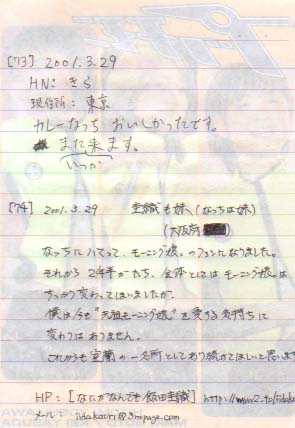 [73] 2001.3.29
HN: きら
現住所: 東京
カレーなっち おいしかったです。
また来ます。
いつか
[74] 2001.3.29 圭織も妹(なっちは妹)
(大阪府
なっちにハマって、モーニング娘。のファンになりました。
それから2年半がたち、全体としては モーニング娘。は
すっかり変わってしまいましたが、
僕は今も"元祖モーニング娘。"を愛する気持ちに
変わりはありません。
これからも室蘭の一名所としてあり続けてほしいと思います
HP: [なにがなんでも飯田圭織]
メール: iidakaori@3mpage.com